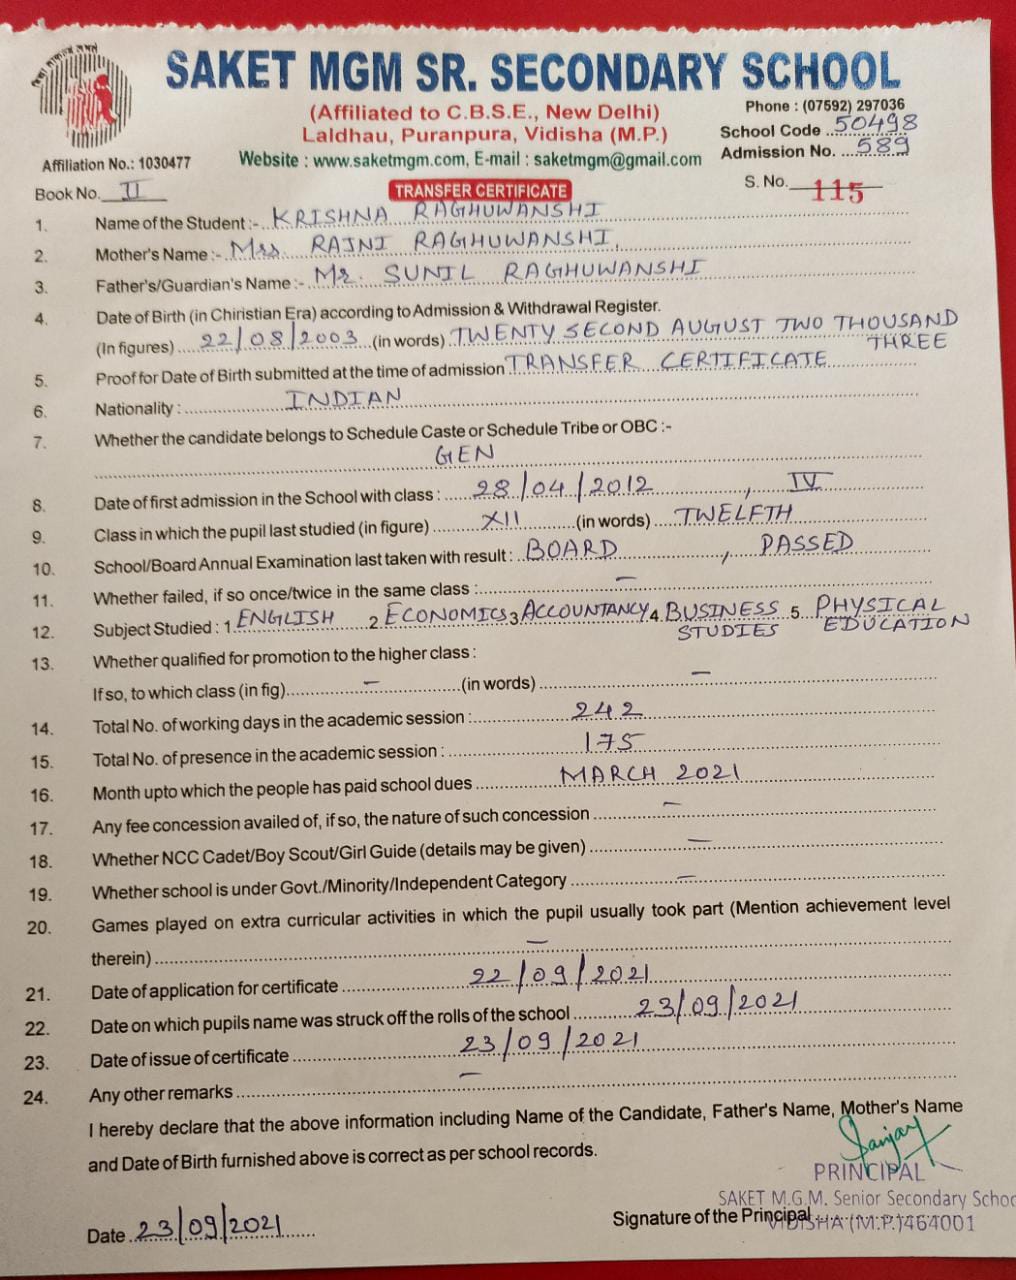 SAKET MGM SR. SECONDARY SCHOOL
(Affiliated to C.B.S.E., New Delhi)
Laldhau, Puranpura, Vidisha (M.P.)
Phone : (07592) 297036
School Code ..50498
Admission No. ...589
Affiliation No.: 1030477
Website : www.saketmgm.com, E-mail : saketmgm@gmail.com
Book No. II
TRANSFER CERTIFICATE
S. No. 115
1. Name of the Student :- KRISHNA RAGHUWANSHI
2. Mother's Name :- Mrs. RAJNI RAGHUWANSHI
3. Father's/Guardian's Name :- Mr. SUNIL RAGHUWANSHI
4. Date of Birth (in Chiristian Era) according to Admission & Withdrawal Register.
(In figures) 22/08/2003 (in words) TWENTY SECOND AUGUST TWO THOUSAND
THREE
5. Proof for Date of Birth submitted at the time of admission TRANSFER CERTIFICATE
6. Nationality : INDIAN
7. Whether the candidate belongs to Schedule Caste or Schedule Tribe or OBC :-
GEN
8. Date of first admission in the School with class : 28/04/2012, IV
9. Class in which the pupil last studied (in figure) XII (in words) TWELFTH
10. School/Board Annual Examination last taken with result : BOARD, PASSED
11. Whether failed, if so once/twice in the same class : –
12. Subject Studied : 1. ENGLISH 2 ECONOMICS 3 ACCOUNTANCY 4. BUSINESS 5. PHYSICAL
STUDIES EDUCATION
13. Whether qualified for promotion to the higher class :
If so, to which class (in fig) – (in words) –
14. Total No. of working days in the academic session : 242
15. Total No. of presence in the academic session : 175
16. Month upto which the people has paid school dues MARCH 2021
17. Any fee concession availed of, if so, the nature of such concession –
18. Whether NCC Cadet/Boy Scout/Girl Guide (details may be given) –
19. Whether school is under Govt./Minority/Independent Category –
20. Games played on extra curricular activities in which the pupil usually took part (Mention achievement level
therein) –
21. Date of application for certificate 22/09/2021
22. Date on which pupils name was struck off the rolls of the school 23/09/2021
23. Date of issue of certificate 23/09/2021
24. Any other remarks –
I hereby declare that the above information including Name of the Candidate, Father's Name, Mother's Name
and Date of Birth furnished above is correct as per school records.
Sanjay
PRINCIPAL
SAKET M.G.M. Senior Secondary Schoo
VIDISHA (M.P.) 464001
Date 23/09/2021
Signature of the Principal